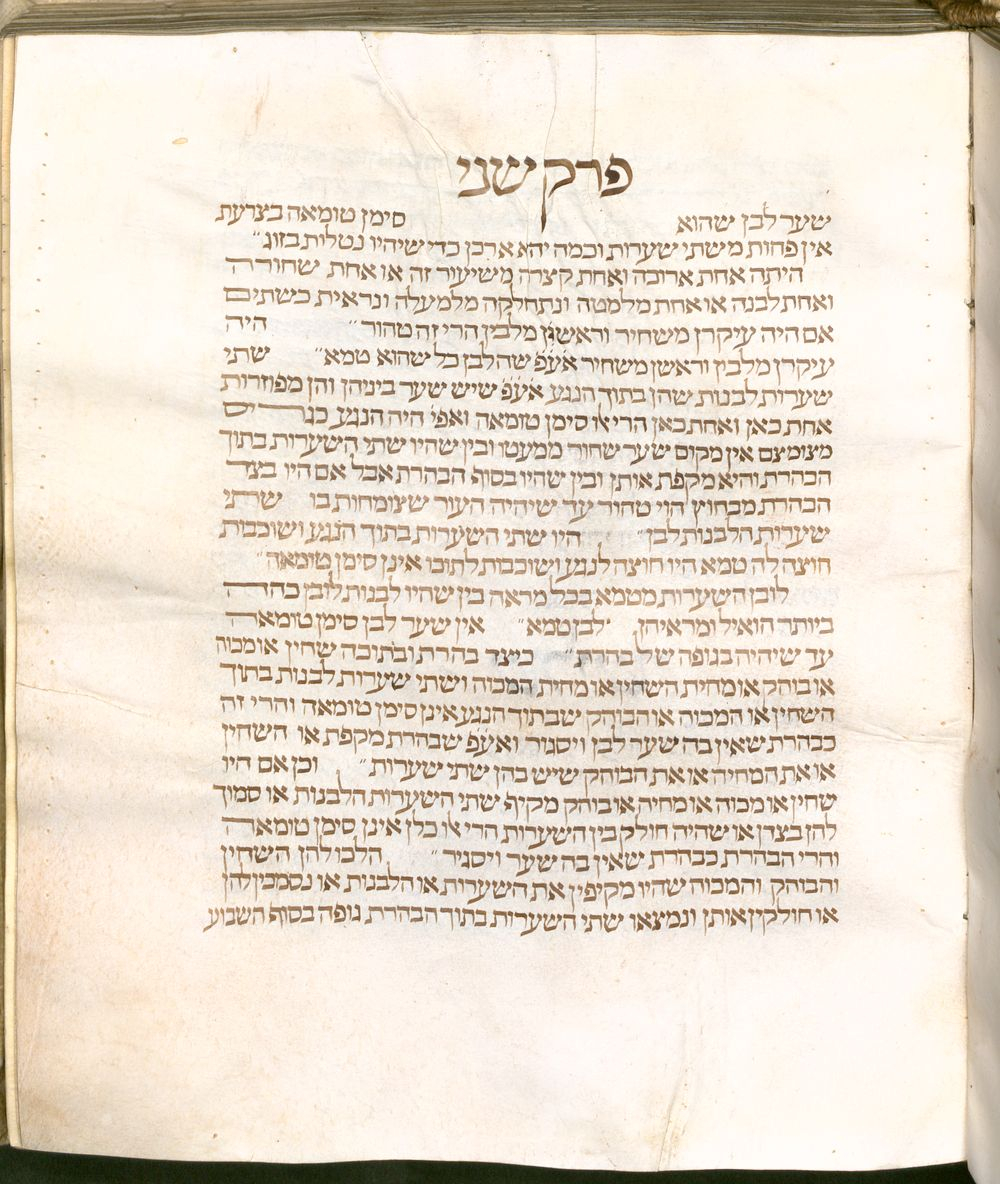 פרק שני
שער לבן שהוא סימן טומאה בצרעת
אין פחות משתי שערות וכמה יהא ארכן כדי שיהיו נטלית בזוג״
היתה אחת ארוכה ואחת קצרה משיעור זה או אחת שחורה
ואחת לבנה או אחת מלמטה ונתחלקה מלמעלה ונראית כשתים
אם היה עיקרן משחיר וראשן מלבין הרי זה טהור״ היה
עיקרן מלבין וראשן משחיר אעפ שהלבן כל שהוא טמא״ שתי
שערות לבנות שהן בתוך הנגע אעפ שיש שער ביניהן והן מפוזרות
אחת כאן ואחת כאן הרי אלו סימן טומאה ואפי היה הנגע כגריס
מצומצם אין מקום שער שחור ממעטו ובין שהיו שתי השערות בתוך
הבהרת והיא מקפת אותן ובין שהיו בסוף הבהרת אבל אם היו בצד
הבהרת מבחוץ הוי טהור עד שיהיה העור שצומחות בו שתי
שערות הלבנות לבן״ היו שתי השערות בתוך הנגע ושוכבות
חוצה לה טמא היו חוצה לנגע ושוכבות לתוכו אינן סימן טומאה״
לובן השערות מטמא בכל מראה בין שהיו לבנות לובן כהה
ביותר הואיל ומראיהן לבן טמא״ אין שער לבן סימן טומאה
עד שיהיה בגופה של בהרת״ כיצד בהרת ובתוכה שחין או מכוה
או בוהק או מחית השחין או מחית המכוה ושתי שערות לבנות בתוך
השחין או המכוה או הבוהק שבתוך הנגע אינן סימן טומאה והרי זה
כבהרת שאין בה שער לבן ויסגור ואעפ שבהרת מקפת או השחין
או את המחיה או את הבוהק שיש בהן שתי שערות״ וכן אם היו
שחין או מכוה או מחיה או בוהק מקיף שתי השערות הלבנות או סמוך
להן בצדן או שהיה חולק בין השערות הרי אלו כלן אינן סימן טומאה
והרי הבהרת כבהרת שאין בה שער ויסגיר״ הלכו להן השחין
והבוהק והמכוה שהיו מקיפין את השערות או הלבנות או נסמכין להן
או חולקין אותן ונמצאו שתי השערות בתוך הבהרת גופה בסוף השבוע